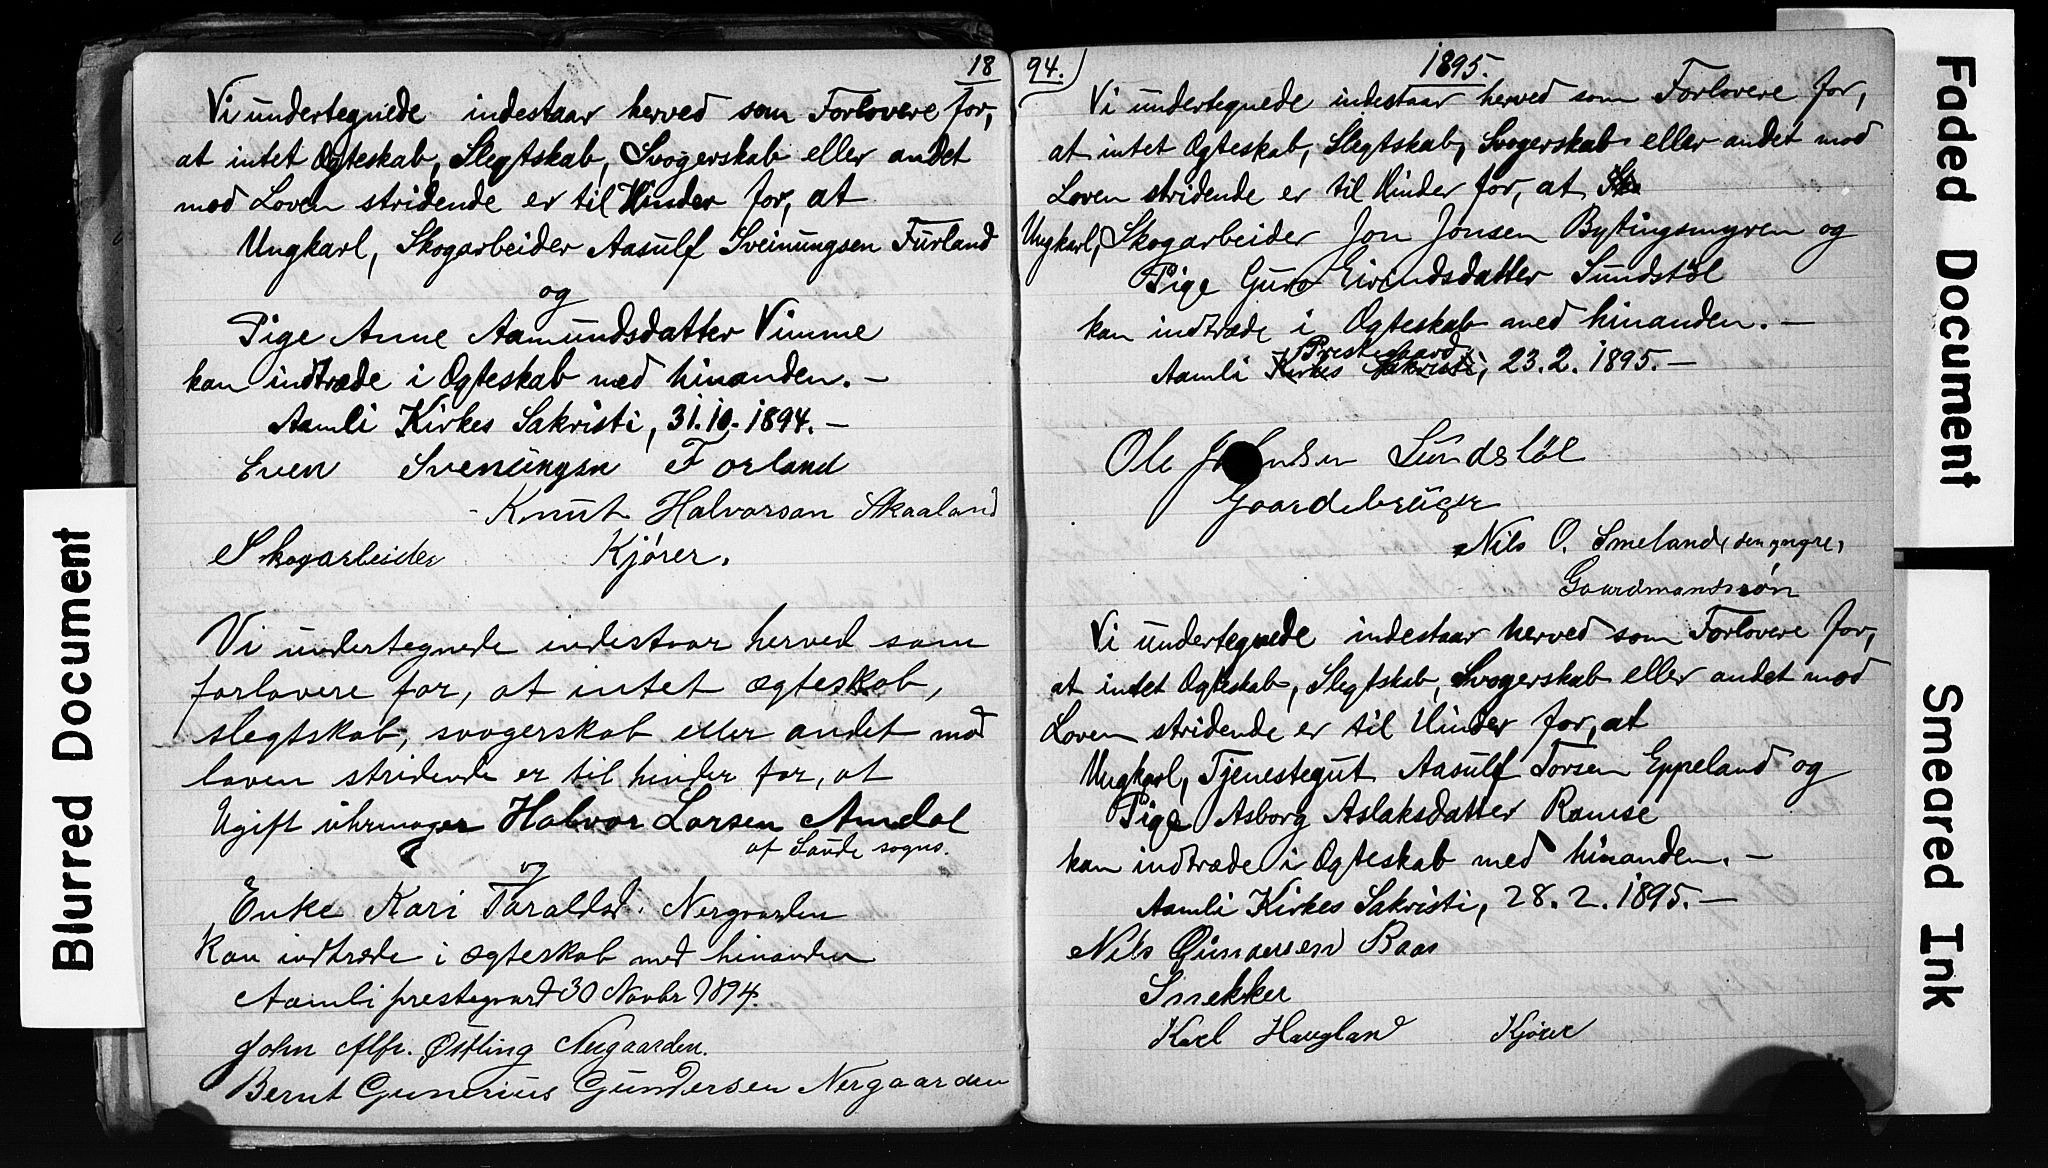 18
Vi undertegnede indestaar herved som Forlovere for,
at intet Ægteskab, Slegtskab, Svogerskab eller andet
mod Loven stridende er til Hinder for, at
Ungkarl, Skogarbeider Aasulf Sveinungsen Furland
og
Pige Anne Aamundsdatter Vimme
kan indtræde i Ægteskab med hinanden. –
Aamli Kirkes Sakristi, 31.10.1894. –
Even Svenüngsn Forland
Knut Halvorsan Skaaland
Skogarbeider Kjører.
Vi undertegnede indestaar herved som
forlovere for, at intet ægteskab,
slegtskab, svogerskab eller andet mod
loven stridende er til hinder for, at
Ugift uhrmager Halvor Larsen Amdal
af Saude sogns.
og
Enke Kari Taraldsd. Nergaarden
kan indtræde i ægteskab med hinanden
Aamli prestegaard 30 Novbr 1894.
John Alfr. Østling Negaarden.
Bernt Gunerius Gundersen Nergaarden
94.
1895.
Vi undertegnede indestaar herved som Forlovere for,
at intet Ægteskab, Slegtskab, Svogerskab eller andet mod
Loven stridende er til Hinder for, at Sko
Ungkarl, Skogarbeider Jon Jonsen Bytingsmyren og
Pige Guro Eivindsdatter Sundstöl
kan indtræde i Ægteskab med hinanden. –
Prestegaard
Aamli Kirkes Sakristi, 23.2.1895. –
Ole Sündslöl
Gaardbrüger
Nils O. Smeland, den yngre,
Gaardmandssön
Vi undertegnede indestaar herved som Forlovere for,
at intet Ægteskab, Slegtskab, Svogerskab eller andet mod
Loven stridende er til Hinder for, at
Ungkarl, Tjenestegut Aasulf Torsen Eppeland og
Pige Asborg Aslaksdatter Ramse
kan indtræde i Ægteskab med hinanden. –
Aamli Kirkes Sakristi, 28.2.1895. –
Nils Gunarsen Baas
Snekker
Karl Haugland Kjörer
Blurred Document
Faded Document
Smeared Ink